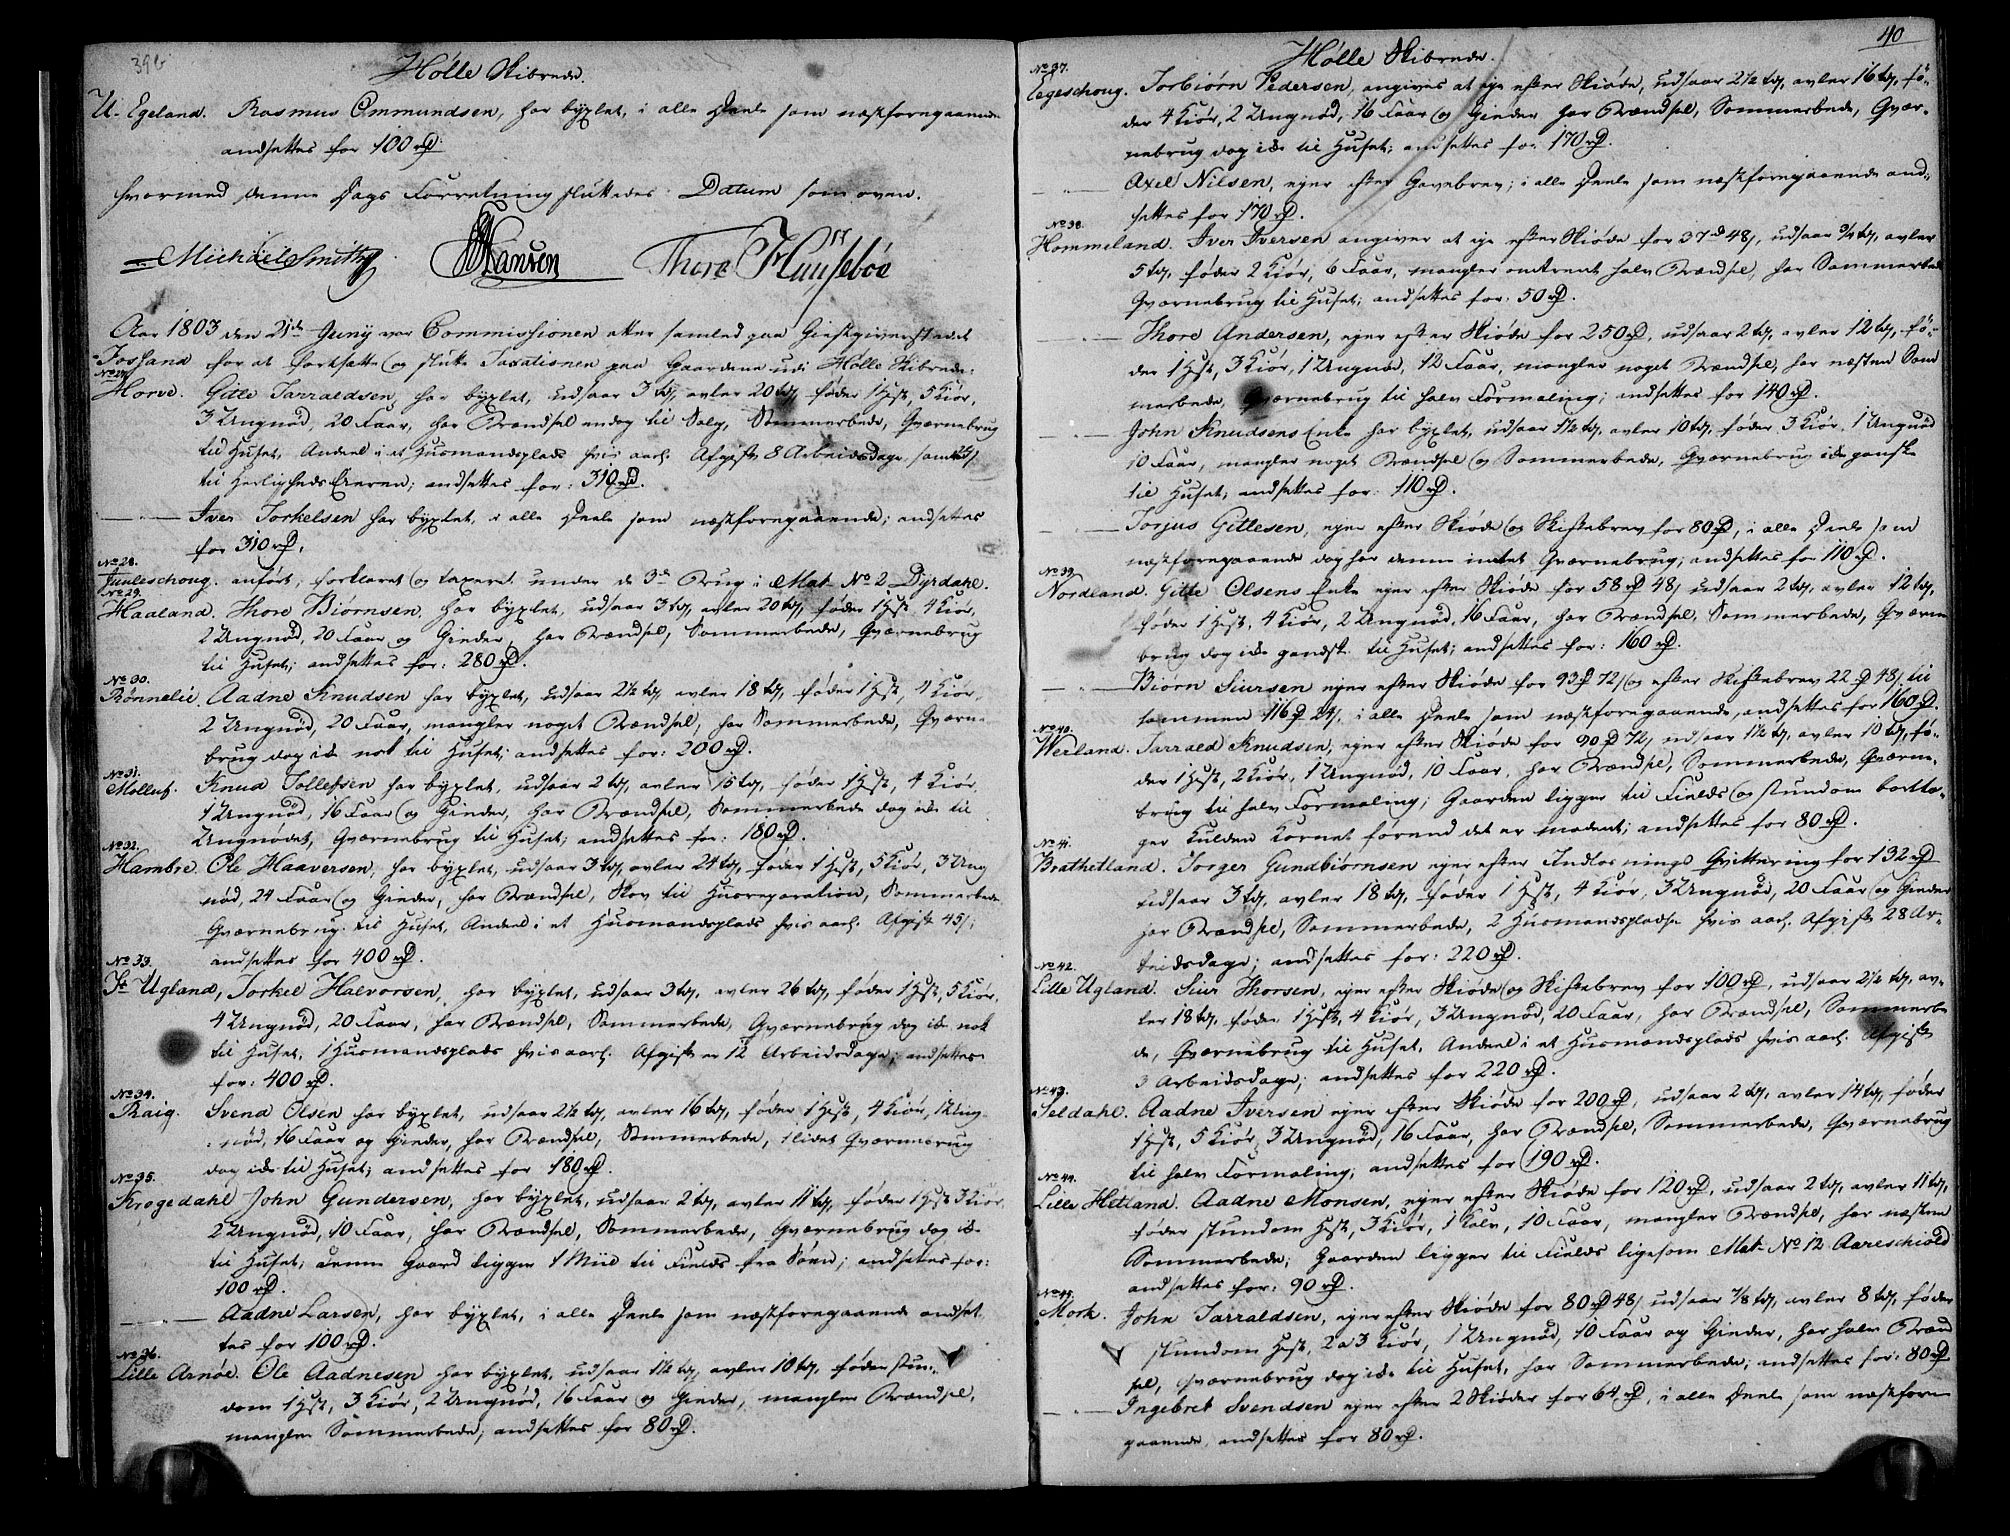 39b
Hölle Skibrede.
U. Egeland. Rasmus Ommundsen, har byxlet, i alle Deele som næstforegaaende
andsettes for 100 rd.
hvormed denne Dags Forretning sluttedes. Datum som oven.
Michael Smith Hansen Thore Huusebøe
Aar 1803 den 21de Junij var Commissionen atter samled paa Giestgiverstedet
Fossand for at fortsette og slutte Taxationen paa Gaardene udi Hölle Skibrede.
No 27.
Horve. Gitle Tarraldsen, har byxlet, udsaar 3 tdr, avler 20 tdr, føder 1 Hest, 5 Kiør,
3 Ungnød, 20 Faar, har Brændsel endog til Salg, Sommerbede, Qværnebrug
til Huset, Andeel i et Husmandsplads hvis aarl. Afgift 8 Arbeidsdage, samt
til Herligheds Eieren; andsettes for: 310 rd.
— " — Iver Torkelsen har byxlet, i alle Deele som næstforegaaende; andsettes
for 310 rd.
No 28.
Juuleschoug. anført, forklaret og taxeret under de 3de Brug i Mat. No 2 Dyrdahl.
No 29.
Haaland. Thore Biørnsen, har byxlet, udsaar 3 tdr, avler 20 tdr, føder 1 Hest, 4 Kiør,
2 Ungnød, 20 Faar og Gieder, har Brændsel, Sommerbede, Qværnebrug
til Huset; andsettes for: 280 rd.
No 30.
Rönnelie. Aadne Knudsen har byxlet, udsaar 2½ tdr, avler 18 tdr, føder 1 Hest, 4 Kiør,
2 Ungnød, 20 Faar, mangler noget Brændsel, har Sommerbede, Qværne-
brug dog ike nok til Huset; andsettes for: 200 rd.
No 31.
Molluf. Knud Tollefsen har byxlet, udsaar 2 tdr, avler 15 tdr, føder 1 Hest, 4 Kiør,
1 Ungnød, 16 Faar og Gieder, har Brændsel, Sommerbede dog ike til
Ungnødet, Qværnebrug til Huset; andsettes for: 180 rd.
No 32.
Hambre. Ole Haaversen, har byxlet, udsaar 3 tdr, avler 24 tdr, føder 1 Hest, 5 Kiør, 3 Ung
nød, 24 Faar og Gieder, har Brændsel, Skov til Husreparation, Sommerbede
Qværnebrug til Huset, Andeel i et Husmandsplads hvis aarl. Afgift 45 s;
andsettes for 400 rd.
No 33.
St Ugland, Torkel Halvorsen, har byxlet, udsaar 3 tdr, avler 26 tdr, føder 1 Hest, 5 Kiør,
4 Ungnød, 20 Faar, har Brændsel, Sommerbede, Qværnebrug dog ike nok
til Huset, 1 Husmandsplads hvis aarl. Afgift er 12 Arbeidsdage; andsettes
for: 400 rd.
No 34.
Raig. Svend Olsen har byxlet, udsaar 2½ tdr, avler 16 tdr, føder 1 Hest, 4 Kiør, 1 Ung
nød, 16 Faar og Gieder, har Brændsel, Sommerbede, 1 lidet Qværnebrug
dog ike til Huset; andsettes for 180 rd.
No 35.
Krogedahl John Gundersen, har byxlet, udsaar 2 tdr, avler 11 tdr, føder 1 Hest 3 Kiør,
2 Ungnød, 10 Faar, har Brændsel, Sommerbede, Qværnebrug dog ike
til Huset; denne Gaard ligger 1 Miil til Fields fra Søen; andsettes for:
100 rd.
— " — Aadne Larsen, har byxlet, i alle Deele som næstforegaaende andset
tes for 100 rd.
No 36.
Lille Arnöe. Ole Aadnesen har byxlet, udsaar 1½ tdr, avler 10 tdr, føder stun-
dom 1 Hest, 3 Kiør, 2 Ungnød, 16 Faar og Gieder, mangler Brændsel,
mangler Sommerbede; andsettes for 80 rd.
40
Hölle Skibrede.
No 37.
Egeschoug. Torbiørn Pedersen, angives at eje efter Skiøde, udsaar 2½ tdr, avler 16 tdr, fø-
der 4 Kiør, 2 Ungnød, 16 Faar og Gieder har Brændsel, Sommerbede, Qvær-
nebrug dog ike til Huset; andsettes for: 170 rd.
— " — Axel Nilsen, ejer efter Gavebrev; i alle Deele som næstforegaaende and-
settes for 170 rd.
No 38.
Hommeland. Iver Iversen angiver at eje efter Skiøde for 37 rd 48 s, udsaar ¾ tdr, avler
5 tdr, føder 2 Kiør, 6 Faar, mangler omtrent halv Brændsel, har Sommerbede
Qværnebrug til Huset; andsettes for: 50 rd.
— " — Thore Andersen, ejer efter Skiøde for 250 rd, udsaar 2 tdr, avler 12 tdr, fø-
der 1 Hest, 3 Kiør, 1 Ungnød, 12 Faar, mangler noget Brændsel, har næsten Som
merbede, Qværnebrug til halv Formaling; andsettes for 140 rd.
— " — John Knudsens Enke har byxlet, udsaar 1½ tdr, avler 10 tdr, føder 3 Kiør, 1 Ungnød
10 Faar, mangler noget Brændsel og Sommerbede, Qværnebrug ike ganske
til Huset; andsettes for: 110 rd.
— " — Torjus Gitlesen, ejer efter Skiøde og Skiftebrev for 80 rd, i alle Deele som
næstforegaaende dog har denne intet Qværnebrug; andsettes for 110 rd.
No 39.
Nordland. Gitle Olsens Enke ejer efter Skiøde for 58 rd 48 s udsaar 2 tdr, avler 12 tdr,
føder 1 Hest, 4 Kiør, 2 Ungnød, 16 Faar, har Brændsel, Sommerbede, Qværne
brug dog ike gandske til Huset; andsettes for: 160 rd.
— " — Biörn Siursen ejer efter Skiøde for 93 rd 72 s og efter Skiftebrev 22 rd 48 s, til
sammen 116 rd 24 s, i alle Deele som næstforegaaende, andsettes for 160 rd.
No 40.
Weeland. Tarrald Knudsen, ejer efter Skiøde for 90 rd 72 s udsaar 1½ tdr, avler 10 tdr, fø-
der 1 Hest, 2 Kiør, 1 Ungnød, 10 Faar, har Brændsel, Sommerbede, Qværne-
brug til halv Formaling; Gaarden ligger til Fields og stundom bortta-
ger Kulden Kornet forend det er modent; andsettes for 80 rd.
No 41.
Brathetland. Torger Gundbiörnsen ejer efter Indløsnings Qvittering for 132 rd
udsaar 3 tdr, avler 18 tdr, føder 1 Hest, 4 Kiør, 3 Ungnød, 20 Faar og Gieder
har Brændsel, Sommerbede, 2 Husmandspladse hvis aarl. Afgift 28 Ar-
beidsdage; andsettes for: 220 rd.
No 42.
Lille Ugland. Siur Thorsen, ejer efter Skiøde og Skiftebrev for 100 rd, udsaar 2½ tdr, av-
ler 18 tdr, føder 1 Hest, 4 Kiør, 3 Ungnød, 20 Faar, har Brændsel, Sommerbe
de, Qværnebrug til Huset, Andeel i et Husmandsplads hvis aarl. Afgift
3 Arbeidsdage; andsettes for 220 rd.
No 43.
Seldahl. Aadne Iversen ejer efter Skiøde for 200 rd, udsaar 2 tdr, avler 14 tdr, føder
1 Hest, 5 Kiør, 3 Ungnød, 16 Faar, har Brændsel, Sommerbede, Qværnebrug
til halv Formaling; andsettes for 190 rd.
No 44.
Lille Hetland. Aadne Monsen, ejer efter Skiøde for 120 rd, udsaar 2 tdr, avler 11 tdr,
føder stundom Hest, 3 Kiør, 1 Kalv, 10 Faar, mangler Brændsel, har næsten
Sommerbede; Gaarden ligger til Fields ligesom Mat. No 12 Aareschiold
andsettes for: 90 rd.
Mork. John Tarraldsen, ejer efter Skiøde for 80 rd 48 s udsaar ⅞ tdr, avler 8 tdr, føder
stundom Hest, 2 a 3 Kiør, 1 Ungnød, 10 Faar og Gieder, har halv Brænd
sel, Qværnebrug dog ike til Huset, har Sommerbede; andsettes for: 80 rd
— " — Ingebret Svendsen ejer efter 2 Skiøder for 64 rd, i alle Deele som næstfore
gaaende, andsettes for 80 rd.